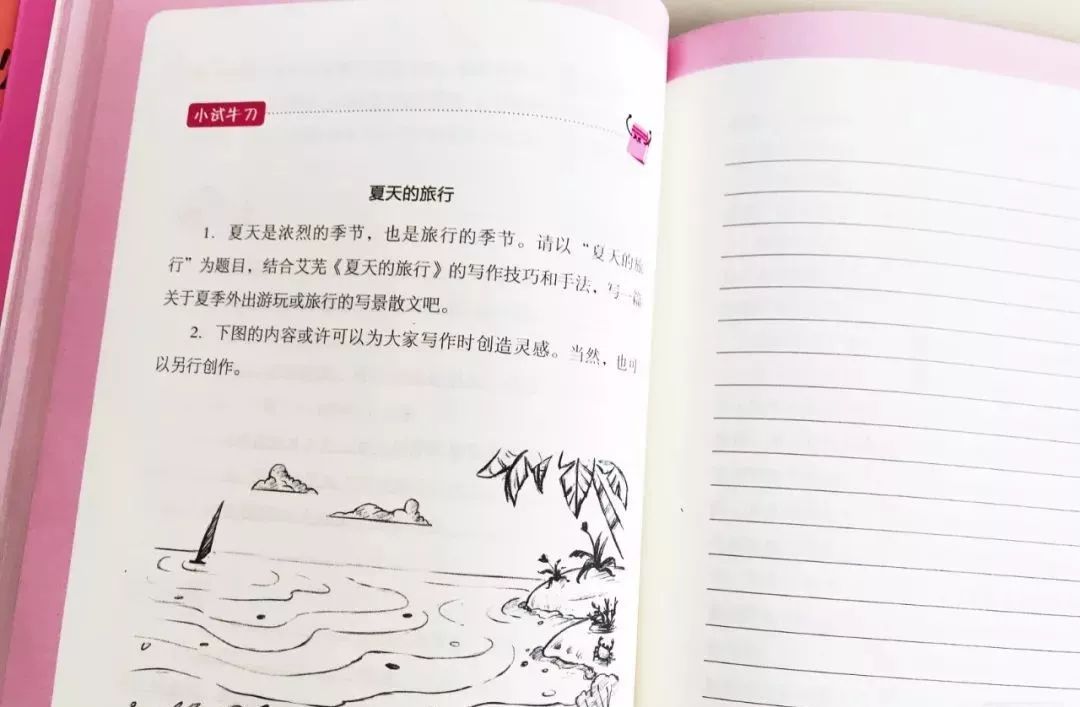 小试牛刀
夏天的旅行
1. 夏天是浓烈的季节，也是旅行的季节。请以“夏天的旅
行”为题目，结合艾芜《夏天的旅行》的写作技巧和手法，写一篇
关于夏季外出游玩或旅行的写景散文吧。
2. 下图的内容或许可以为大家写作时创造灵感。当然，也可
以另行创作。